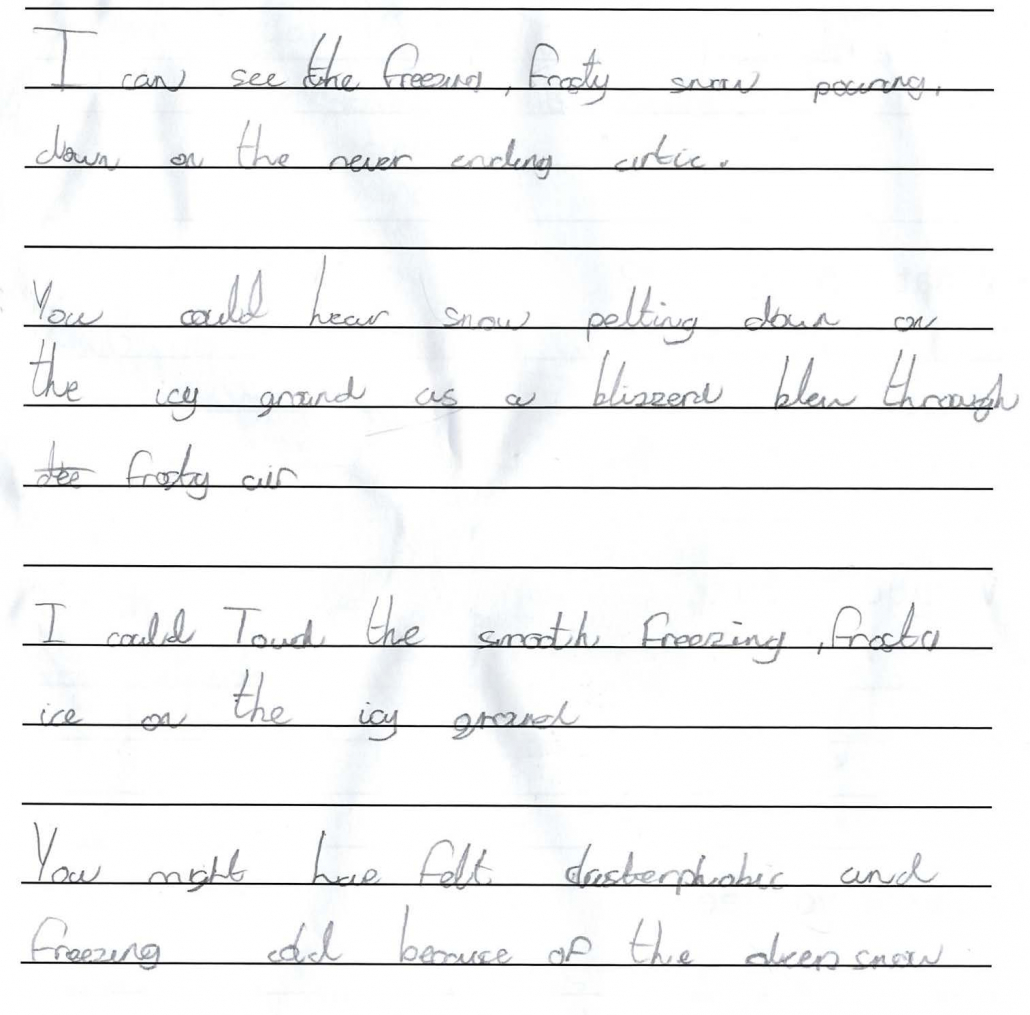 I can see the freezing, frosty snow pouring,
down on the never ending artic.
You could hear snow pelting down on
the icy ground as a blizzerd blew through
frosty air
I could Touch the smooth freezing, frosty
ice on the icy ground
You might have felt clasterphobic and
freezing cold because of the deep snow